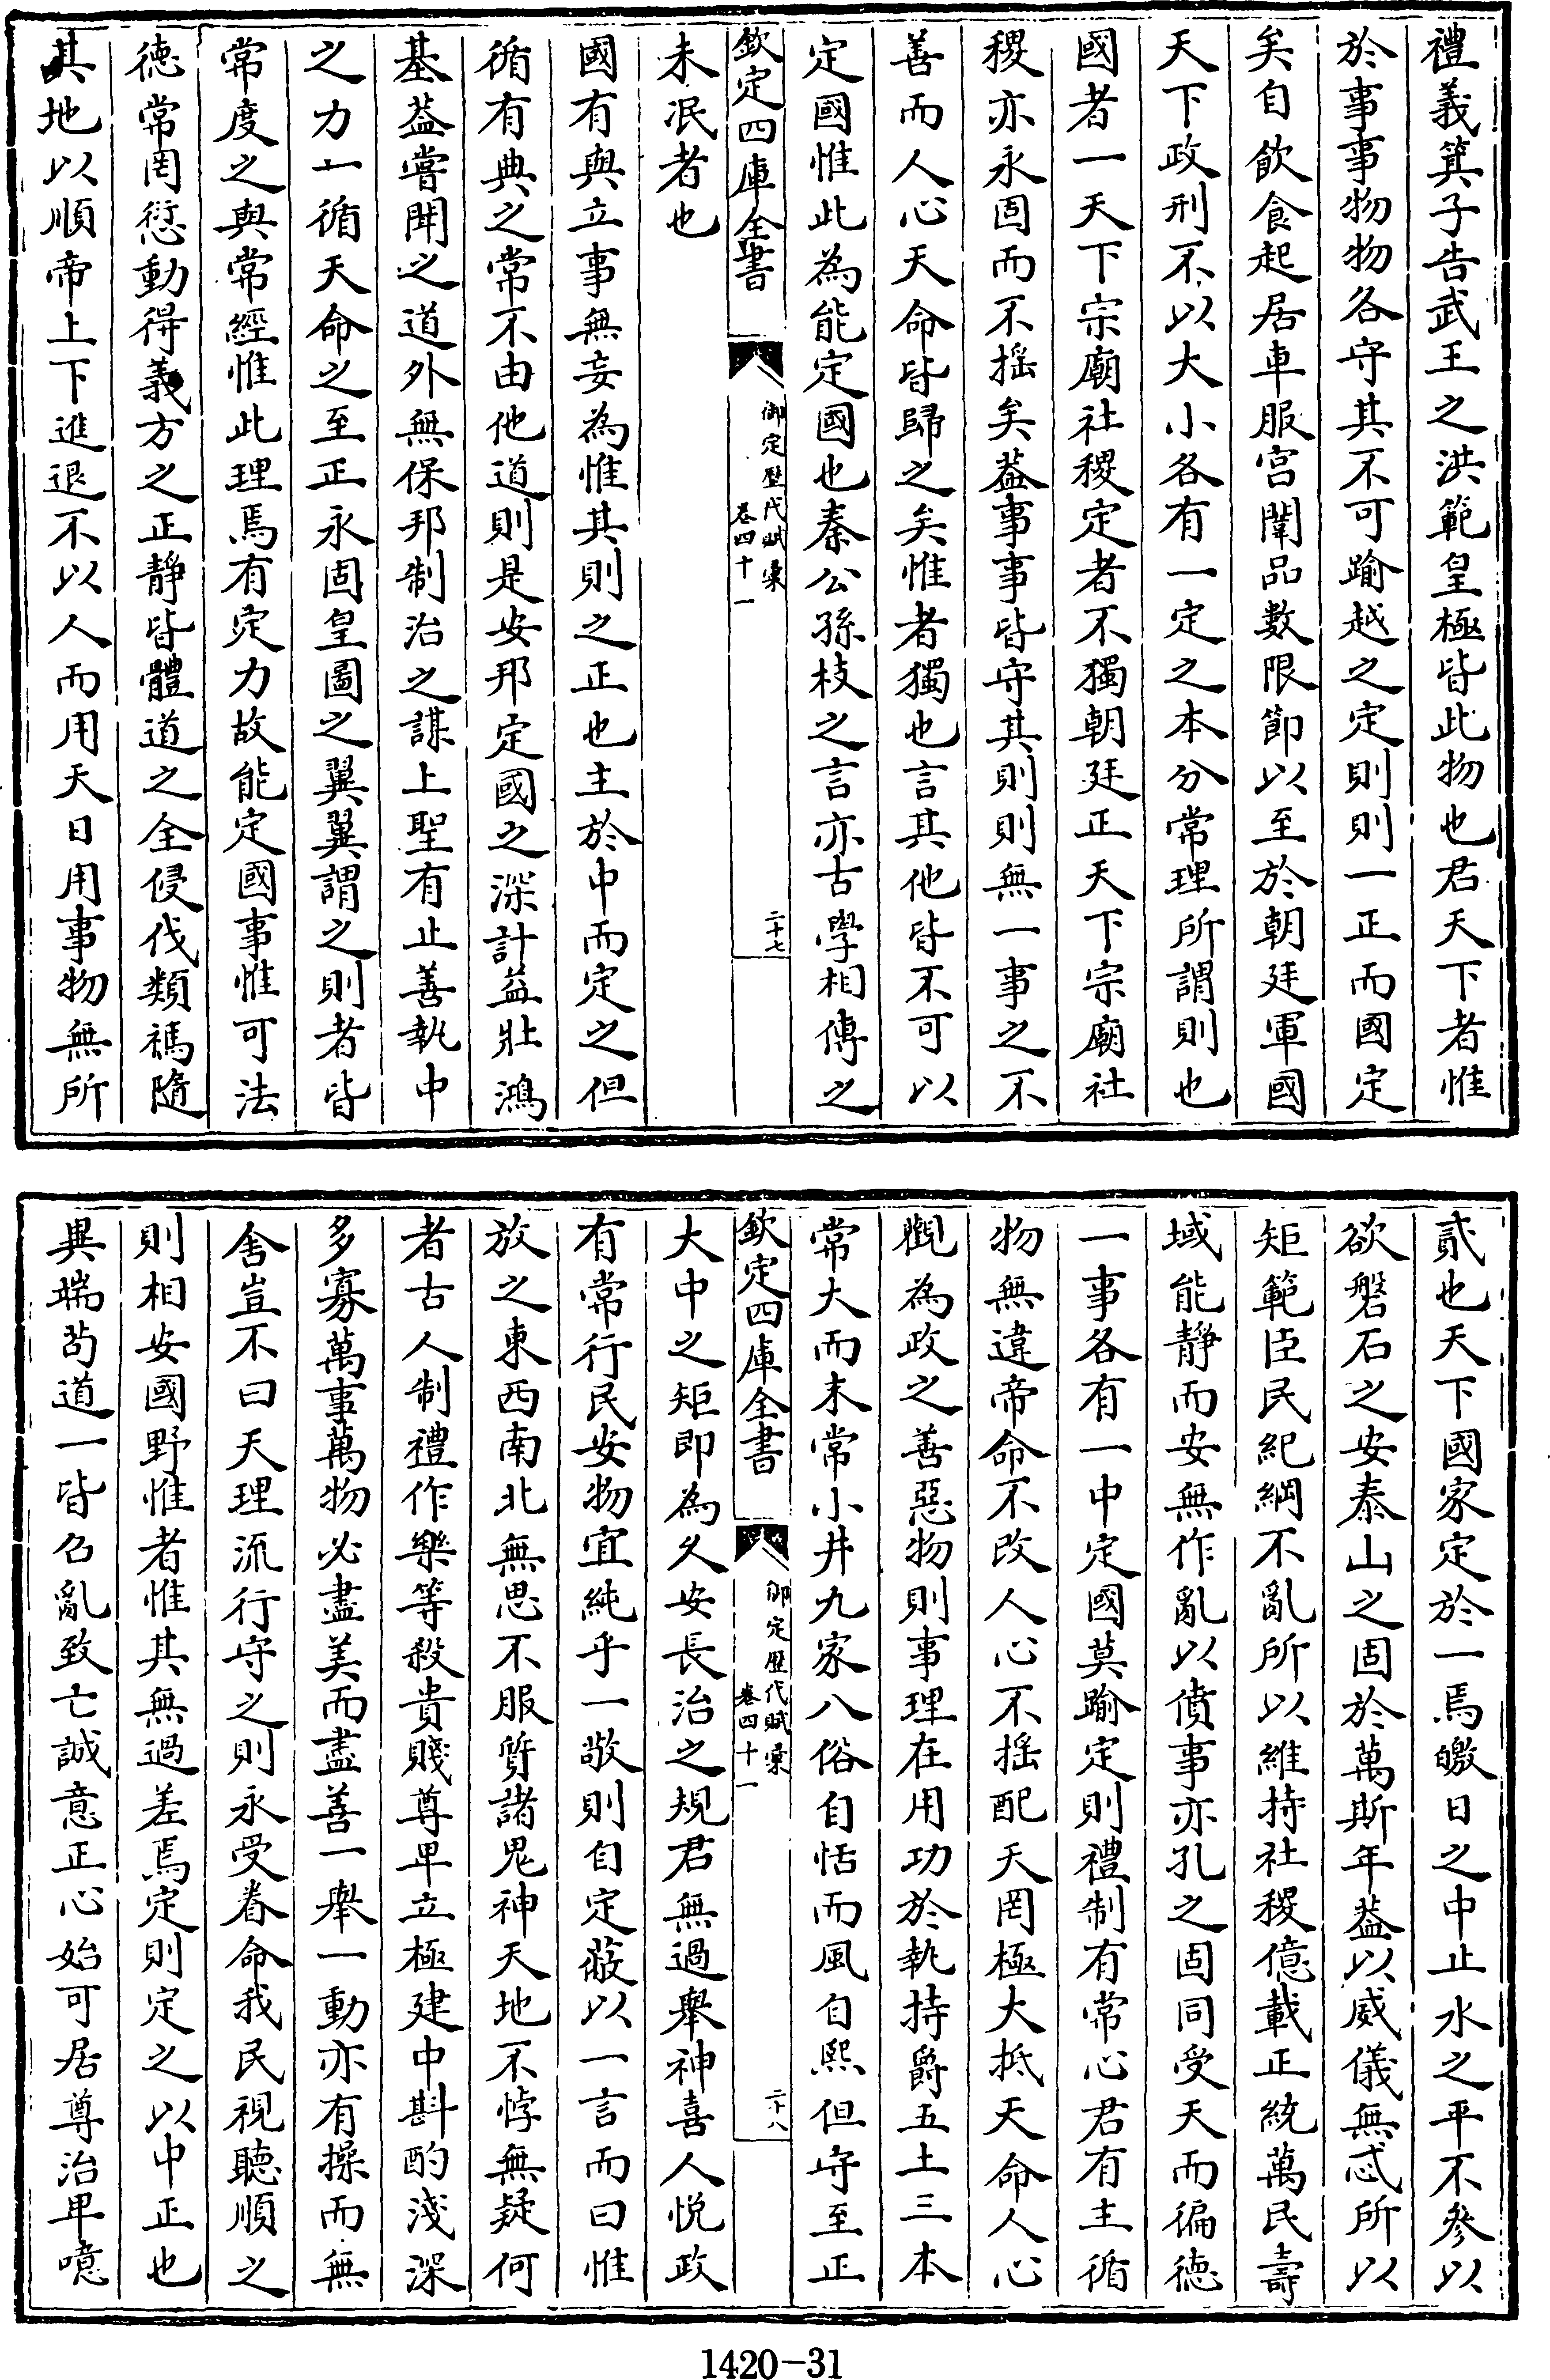 禮義箕子告武王之洪範皇極皆此物也君天下者惟
於事事物物各守其不可踰越之定則則一正而國定
矣自飲食起居車服宮闈品數限節以至於朝廷軍國
天下政刑不以大小各有一定之本分常理所謂則也
國者一天下宗廟社稷定者不獨朝廷正天下宗廟社
稷亦永固而不搖矣葢事事皆守其則則無一事之不
善而人心天命皆歸之矣惟者獨也言其他皆不可以
定國惟此為能定國也秦公孫枝之言亦古學相傳之
欽定四庫全書
御定歷代賦彙
卷四十一
二十七
未泯者也
國有與立事無妄為惟其則之正也主於中而定之但
循有典之常不由他道則是安邦定國之深計益壯鴻
基葢嘗聞之道外無保邦制治之謀上聖有止善執中
之力一循天命之至正永固皇圖之翼翼謂之則者皆
常度之與常經惟此理焉有定力故能定國事惟可法
德常罔愆動得義方之正靜皆體道之全侵伐類禡隨
其地以順帝上下進退不以人而用天日用事物無所
貳也天下國家定於一焉皦日之中止水之平不參以
欲磐石之安泰山之固於萬斯年葢以威儀無忒所以
矩範臣民紀綱不亂所以維持社稷億載正統萬民壽
域能靜而安無作亂以僨事亦孔之固同受天而徧德
一事各有一中定國莫踰定則禮制有常心君有主循
物無違帝命不改人心不搖配天罔極大抵天命人心
觀為政之善惡物則事理在用功於執持爵五土三本
常大而末常小井九家八俗自恬而風自熙但守至正
欽定四庫全書
御定歷代賦彙
卷四十一
二十八
大中之矩即為久安長治之規君無過舉神喜人悅政
有常行民安物宜純乎一敬則自定蔽以一言而曰惟
放之東西南北無思不服質諸鬼神天地不悖無疑何
者古人制禮作樂等殺貴賤尊卑立極建中斟酌淺深
多寡萬事萬物必盡美而盡善一舉一動亦有操而無
舍豈不曰天理流行守之則永受眷命我民視聽順之
則相安國野惟者惟其無過差焉定則定之以中正也
異端茍道一皆召亂致亡誠意正心始可居尊治卑噫
1420-31